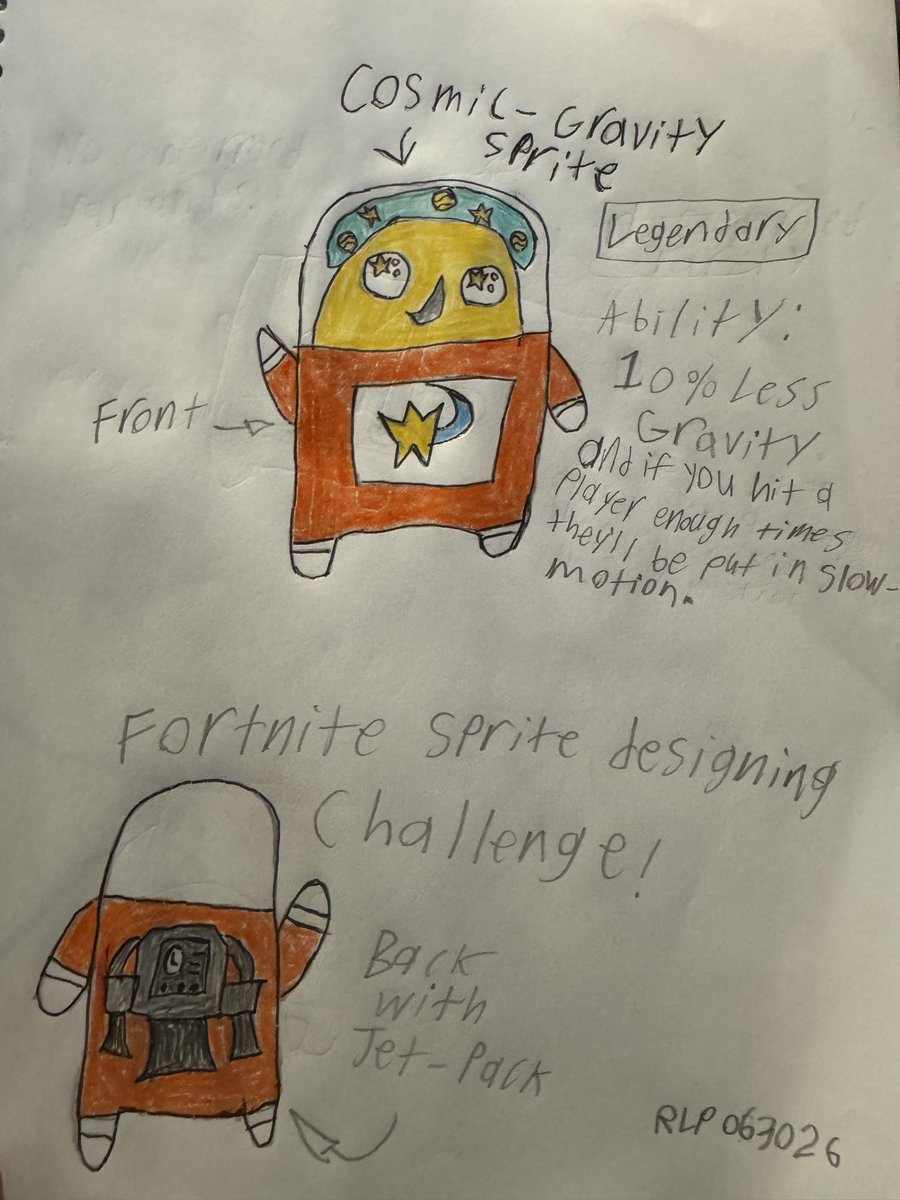 Cosmic-Gravity
Sprite
Legendary
Ability:
10% Less
Gravity
and if you hit a
player enough times
they'll be put in slow-
motion.
Front
Fortnite sprite designing
Challenge!
Back
with
Jet-Pack
RLP 063026